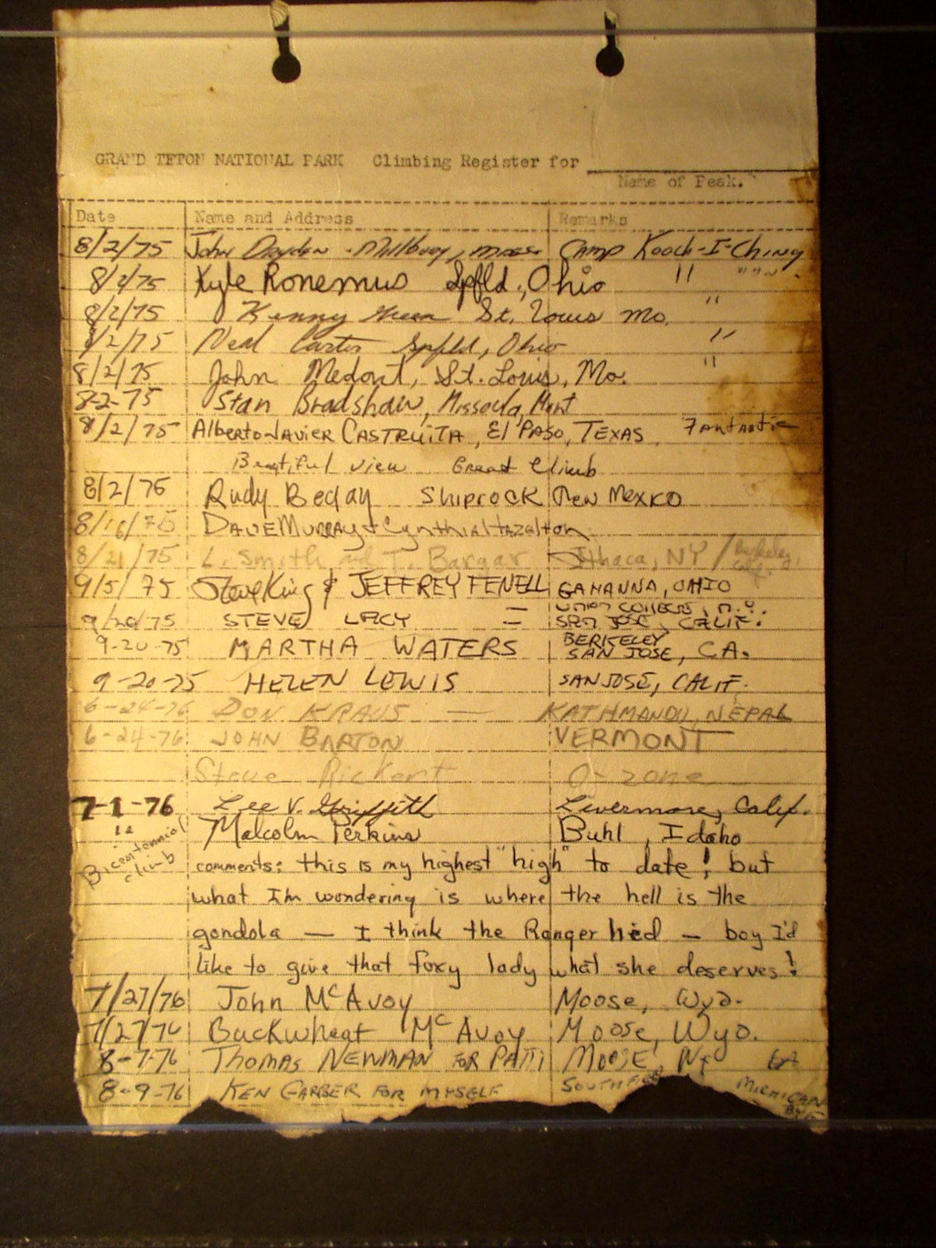 GRAND TETON NATIONAL PARK Climbing Register for
Name of Peak.
Date Name and Address Remarks
8/2/75 John Camp Kooch-I-Ching
8/2/75 Kyle Ronemus Spfld., Ohio " " " "
8/2/75 Kenny St. Louis Mo. "
8/2/75 Neal Carter Spfld, Ohio "
8/2/75 John Medart, St. Louis, Mo. "
8-2-75 Stan Bradshaw, Missoula, Mont
8/2/75 Alberto Javier CASTRUITA, El PASO, TEXAS, Fantastic
Beautiful view Great Climb
8/2/75 Rudy Begay Shiprock New Mexico
8/16/75 DAVE MURRAY & Cynthia Hazelton
8/21/75 L. Smith and T. Bargar Ithaca, NY / Berkeley, Calif.
9/5/75 Steve King & JEFFREY FENELL GAHANNA, OHIO
UNION COLLEGE, N.Y.
9/20/75 STEVE LACY = SAN JOSE, CALIF.
9-20-75 MARTHA WATERS BERKELEY
SAN JOSE, CA.
9-20-75 HELEN LEWIS SAN JOSE, CALIF.
6-24-76 DON KRAUS — KATHMANDU, NEPAL
6-24-76 JOHN BARTON VERMONT
Steve Rickert O-zone
7-1-76 Lee V. Griffith Livermore, Calif.
" Malcolm Perkins Buhl, Idaho
Bicentennial climb
comments: this is my highest "high" to date! but
what I'm wondering is where the hell is the
gondola — I think the Ranger lied — boy I'd
like to give that foxy lady what she deserves!
7/27/76 John McAvoy Moose, Wyo.
7/27/76 Buckwheat McAvoy Moose, Wyo.
8-7-76 THOMAS NEWMAN FOR PATTI MOOSE,
8-9-76 KEN GARBER FOR MYSELF SOUTHFIELD MICHIGAN